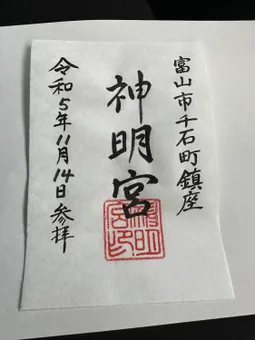 富山市千石町鎮座
神明宮
令和5年11月14日参拝